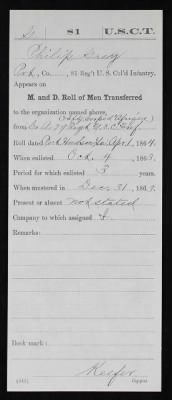 G | 81 | U.S.C.T.
Philip Gray
Pvt, Co. , 81 Reg't U. S. Col'd Infantry.
Appears on
M. and D. Roll of Men Transferred
to the organization named above,
from Co. A 79 Regt U.S.C. Inf.
Roll dated Port Hudson La Apr 1, 1864.
When enlisted Oct. 4, 1863.
Period for which enlisted 3 years.
When mustered in Dec. 31, 1863.
Present or absent Not stated
Company to which assigned
Remarks:
Book mark:
Keefer
Copyist.